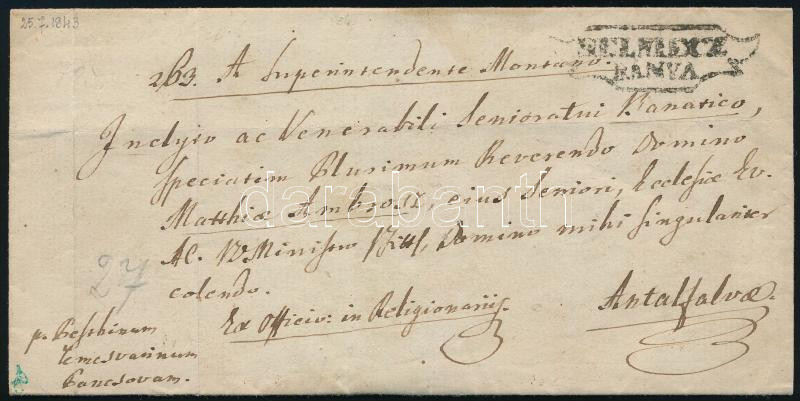 25.7.1843
SELMECZ
BANYA
263. A Superintendente Montano.
Inclyto ac Venerabili Senioratui Banatico,
speciatim Plurimum Reverendo Domino
Matthiæ Ambrosz, ejus Seniori, Ecclesiæ Ev.
Al. V. Ministro Domino mihi singulariter
colendo.
27
Ex Officio: in Religionariis.
Antalfalvæ.
p. Pesthinum
Temesvarinum
Pancsovam.
darabanth